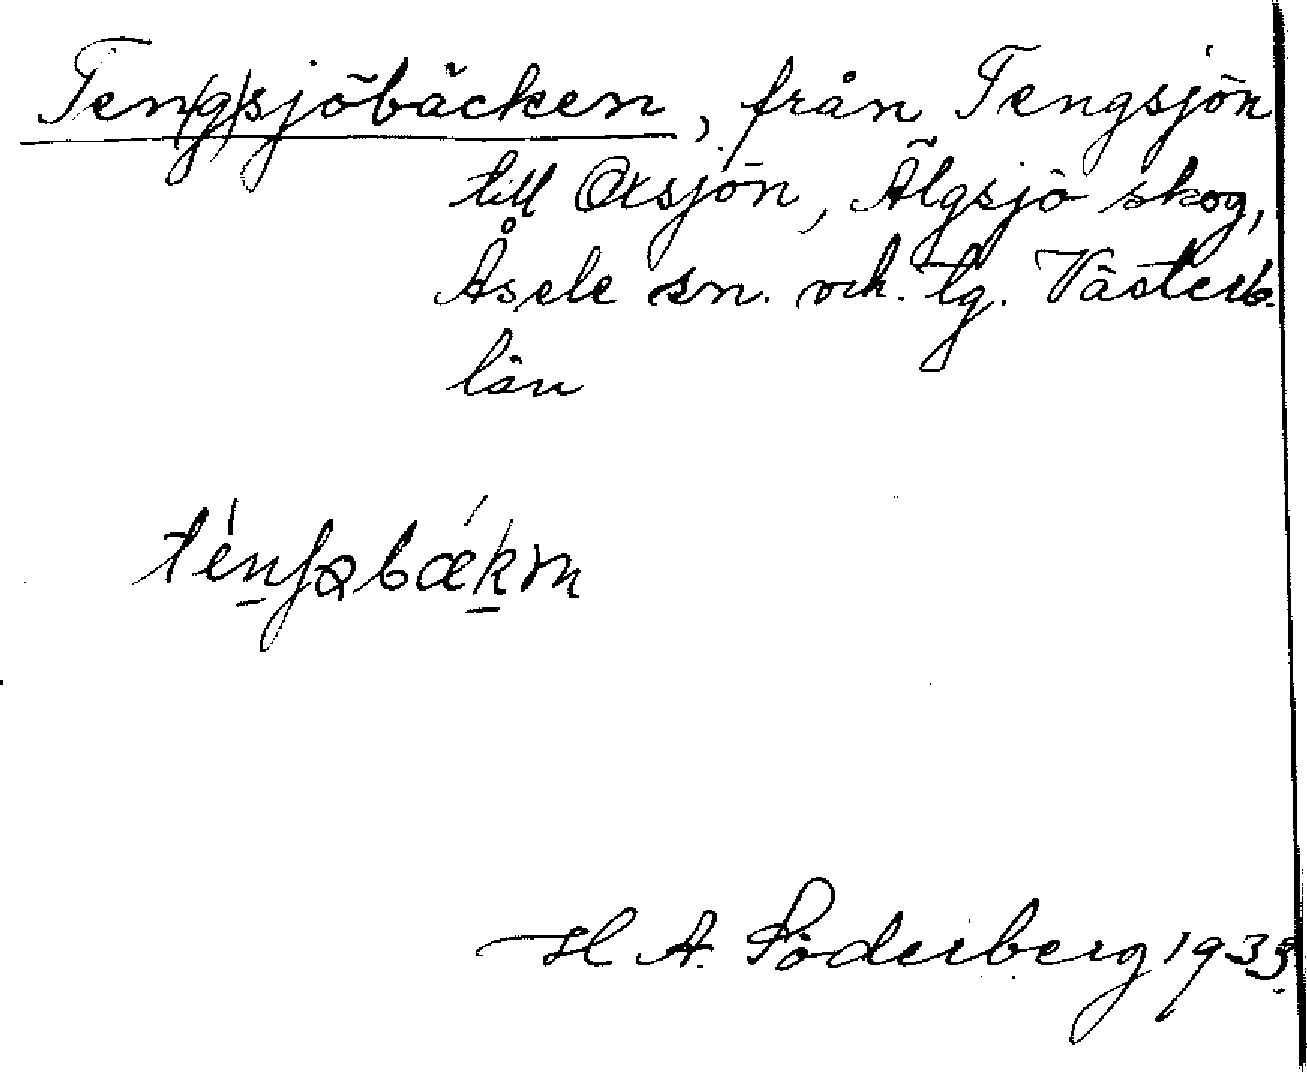 Ten(g)sjöbäcken, från Tengsjön
till Oxsjön, Älgsjö skog,
Åsele sn. och lg. Västerb.
län
H A. Söderberg 1935.